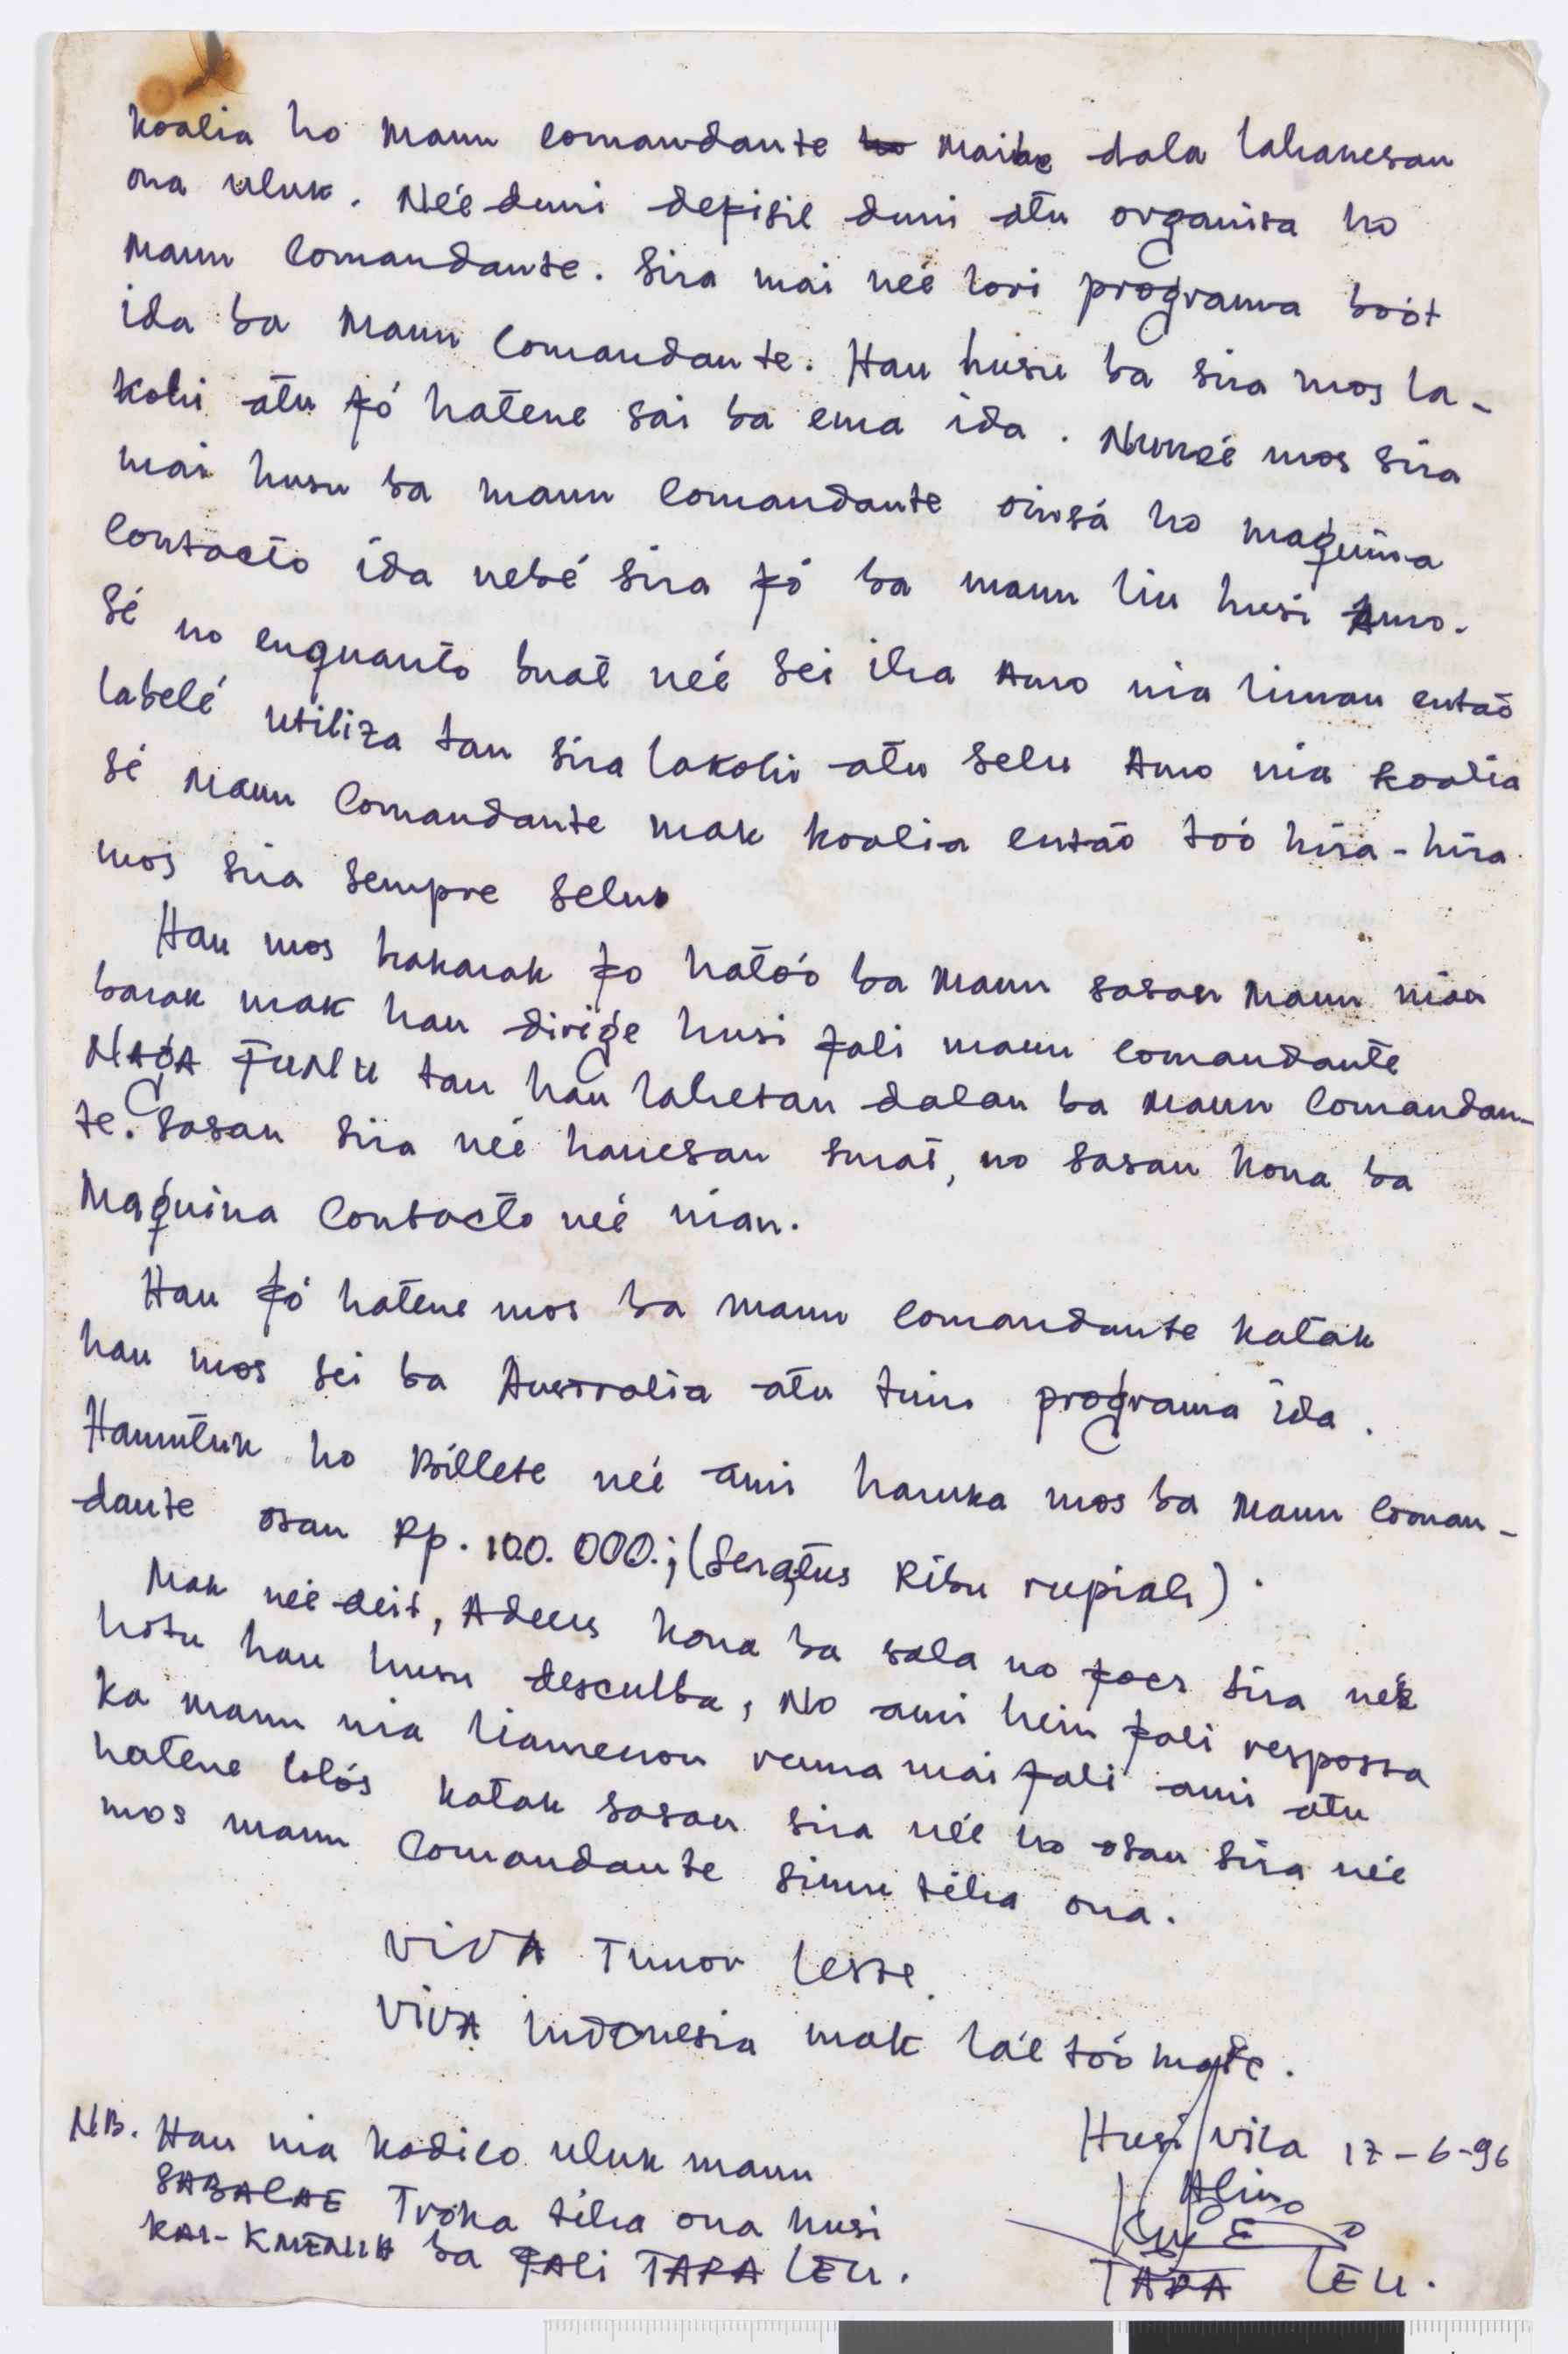 Koalia ho Maun Comandante ho Maibe dala lahanesan
ona uluk. Neé duni defisil duni atu organisa ho
Maun Comandante. Sira mai neé lori programa boót
ida ba Maun Comandante. Hau husu ba sira mos la-
kohi atu fó hatene sai ba ema ida. Nuneé mos sira
mai husu ba maun Comandante oinsá ho maquina
Contacto ida nebé sira fó ba maun liu husi Amo.
Sé no enquanto buat neé sei iha Amo nia liman entaõ
labelé utiliza tan sira lakohi atu selu Amo nia koalia
sé Maun Comandante mak koalia entaõ toó hira-hira
mos sira sempre seluk
Hau mos hakarak fo hatoó ba Maun sasan Maun nian
barak mak hau dirige husi fali maun comandante
NAGA FUNU tan hau lahetan dalan ba Maun Comandan-
te. Sasan sira neé hanesan surat, no sasan kona ba
Maquina Contacto neé nian.
Hau fó hatene mos ba maun comandante katak
hau mos sei ba Australia atu tuir programa ida.
Hamutuk ho Billete neé ami haruka mos ba Maun Coman-
dante osan Rp. 100.000.; (Seratus Ribu rupiah).
Mak neé deit, Adeus kona ba sala no foer sira neé
hotu hau husu desculba, No ami hein fali resposta
ka maun nia liamenon ruma mai fali ami atu
hatene lolós katak sasan sira neé ho osan sira neé
mos maun Comandante simu tiha ona.
VIVA Timor Leste.
VIVA Indonesia mak láe toó mate.
Husi vila 17-6-96
Alin
TARA LEU.
NB. Hau nia kodico uluk maun
SABALAE Troka tiha ona husi
ba FALI TARA LEU.